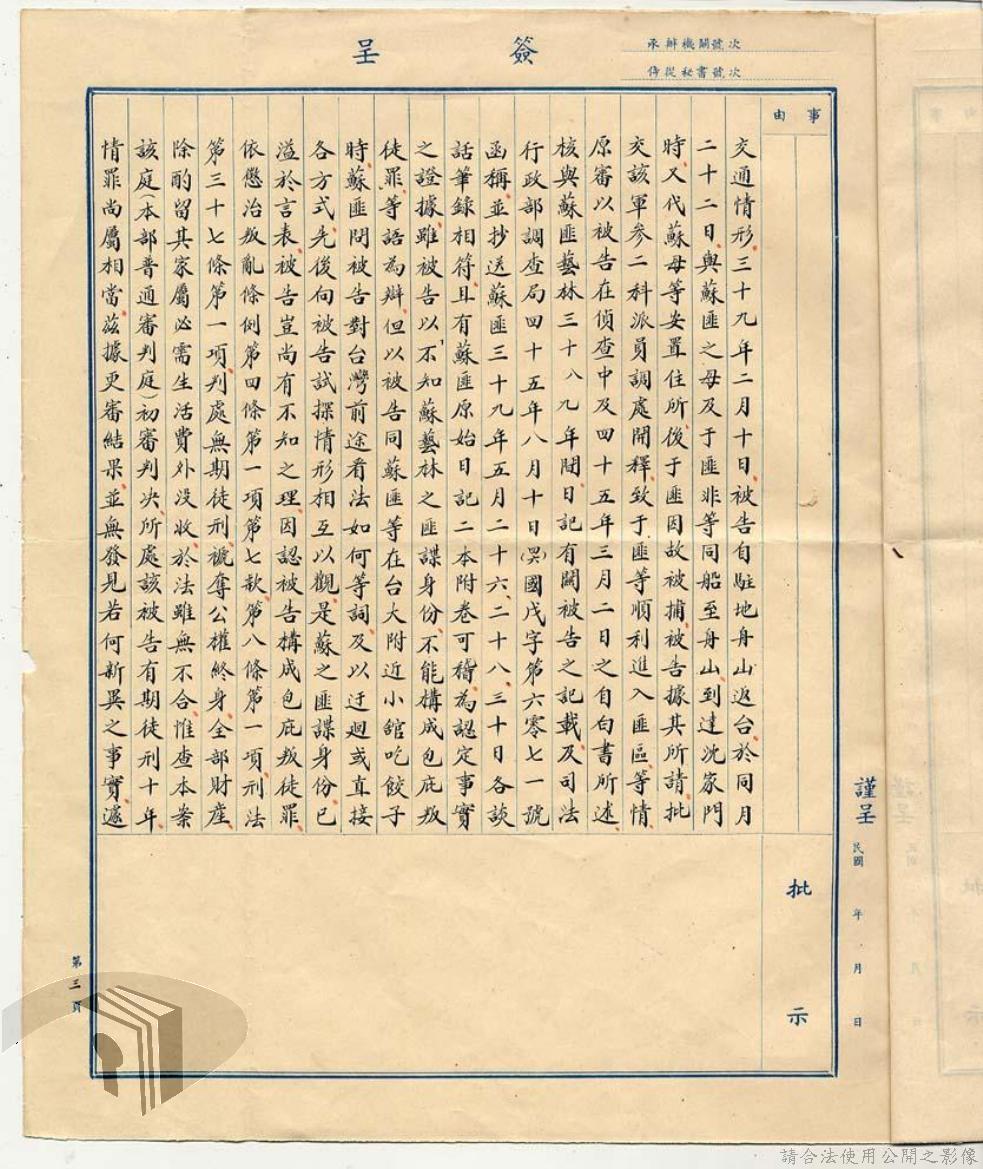 簽呈
承辦機關號次
侍從秘書號次
事由
交通情形，三十九年二月十日，被告自駐地舟山返台，於同月
二十二日，與蘇匪之母及于匪非等同船至舟山，到達沈家門
時，又代蘇母等安置住所，後于匪因故被捕，被告據其所請，批
交該軍參二科派員調處開釋，致于匪等順利進入匪區，等情，
原審以被告在偵查中及四十五年三月二日之自白書所述，
核與蘇匪藝林三十八九年間，日記有關被告之記載，及司法
行政部調查局四十五年八月十日(昃)國戊字第六零七一號
函稱，並抄送蘇匪三十九年五月二十六、二十八、三十日各談
話筆錄相符，且有蘇匪原始日記二本附卷可稽，為認定事實
之證據，雖被告以不知蘇藝林之匪諜身份，不能構成包庇叛
徒罪，等語為辯，但以被告同蘇匪等在台大附近小館吃餃子
時，蘇匪問被告對台灣前途看法如何等詞，及以迂迴或直接
各方式，先後向被告試探情形相互以觀，是蘇之匪諜身份已
溢於言表，被告豈尚有不知之理，因認被告構成包庇叛徒罪，
依懲治叛亂條例第四條第一項第七款，第八條第一項，刑法
第三十七條第一項，判處無期徒刑，褫奪公權終身，全部財產，
除酌留其家屬必需生活費外沒收，於法雖無不合，惟查本案
該庭(本部普通審判庭)初審判決，所處該被告有期徒刑十年，
情罪尚屬相當，茲據更審結果，並無發見若何新異之事實，遽
批示
謹呈
民國 年 月 日
第三頁
請合法使用公開之影像